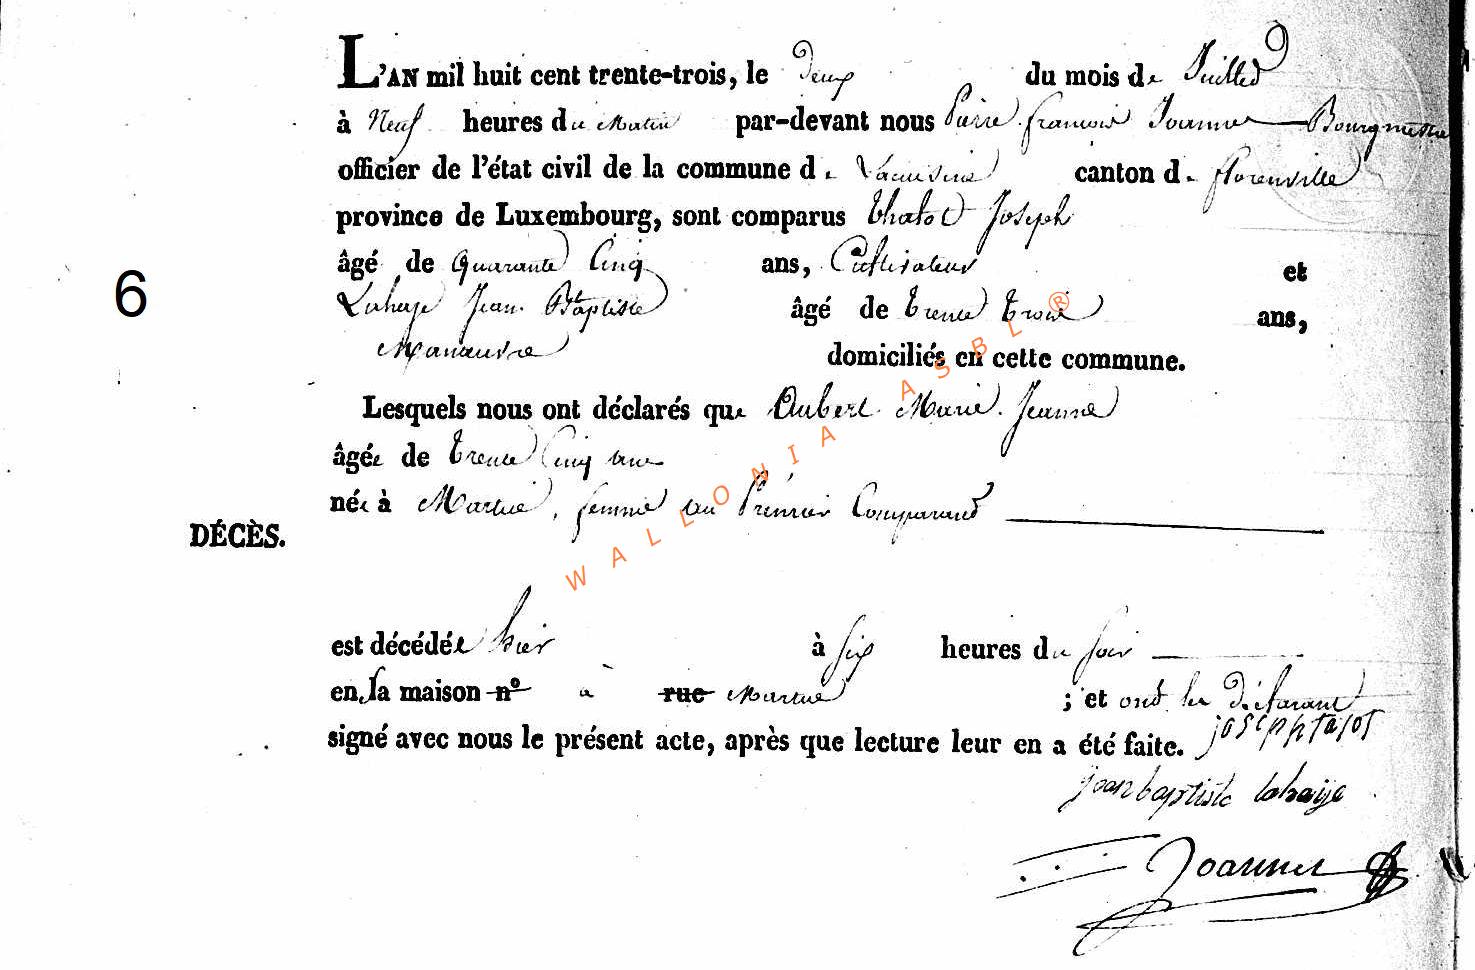 L'AN mil huit cent trente-trois, le Deux du mois de Juillet
à Neuf heures du Matin par-devant nous Pierre françois Joannes Bourgmestre
officier de l'état civil de la commune de Lacuisine canton de florenville
province de Luxembourg, sont comparus Thatot Joseph
âgé de Quarante Cinq ans, Cultivateur et
6
Lahaye Jean Baptiste âgé de trente trois ans,
Manœuvre domiciliés en cette commune.
Lesquels nous ont déclarés que Aubert Marie Jeanne
âgée de trente Cinq ans
née à Martué, femme au Prémier Comparant
DÉCÈS.
est décédée hier à Six heures du soir
en la maison n° à rue Martué ; et ont les Déclarant
signé avec nous le présent acte, après que lecture leur en a été faite. joseph tajot
jean baptiste lahaije
Joannes
WALLONIA ASBL ®